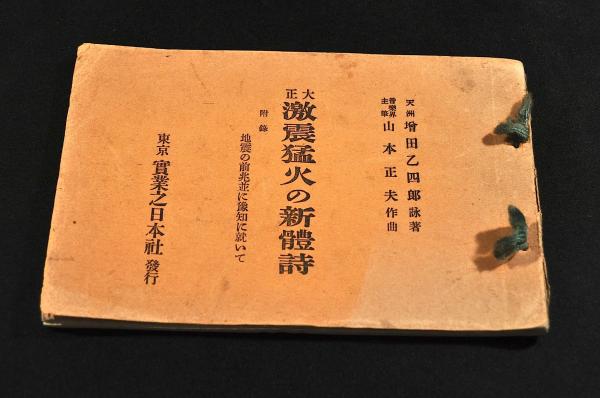 天洲 增田乙四郎 詠著
音樂界主筆 山本正夫 作曲
大正
激震猛火の新體詩
附錄
地震の前兆並に豫知に就いて
東京 實業之日本社 發行